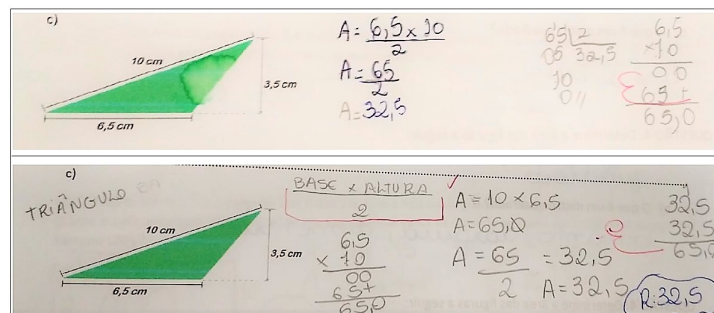 c)
10 cm
3,5 cm
6,5 cm
A= 6,5 x 10
2
A= 65
2
A= 32,5
65 2
05 32,5
10
0//
6,5
x10
00
65+
65,0
c)
TRIÂNGULO
10 cm
3,5 cm
6,5 cm
BASE x ALTURA
2
6,5
x 10
00
65+
65,0
A= 10 x 6,5
A= 65,0
A= 65 = 32,5
2
A= 32,5
32,5
32,5
65,0
R:32,5